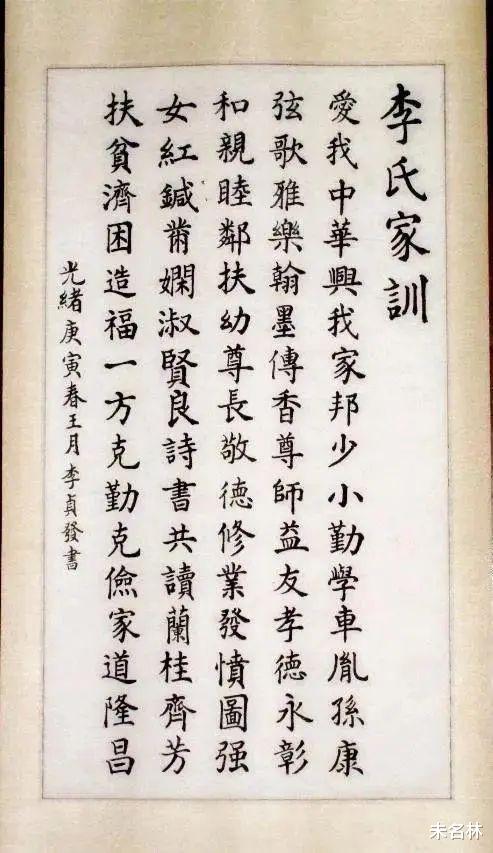 李氏家訓
愛我中華興我家邦少小勤學車胤孫康
弦歌雅樂翰墨傳香尊師益友孝德永彰
和親睦鄰扶幼尊長敬德修業發憤圖强
女紅鍼黹嫻淑賢良詩書共讀蘭桂齊芳
扶貧濟困造福一方克勤克儉家道隆昌
光緒庚寅春王月李貞發書
未名林